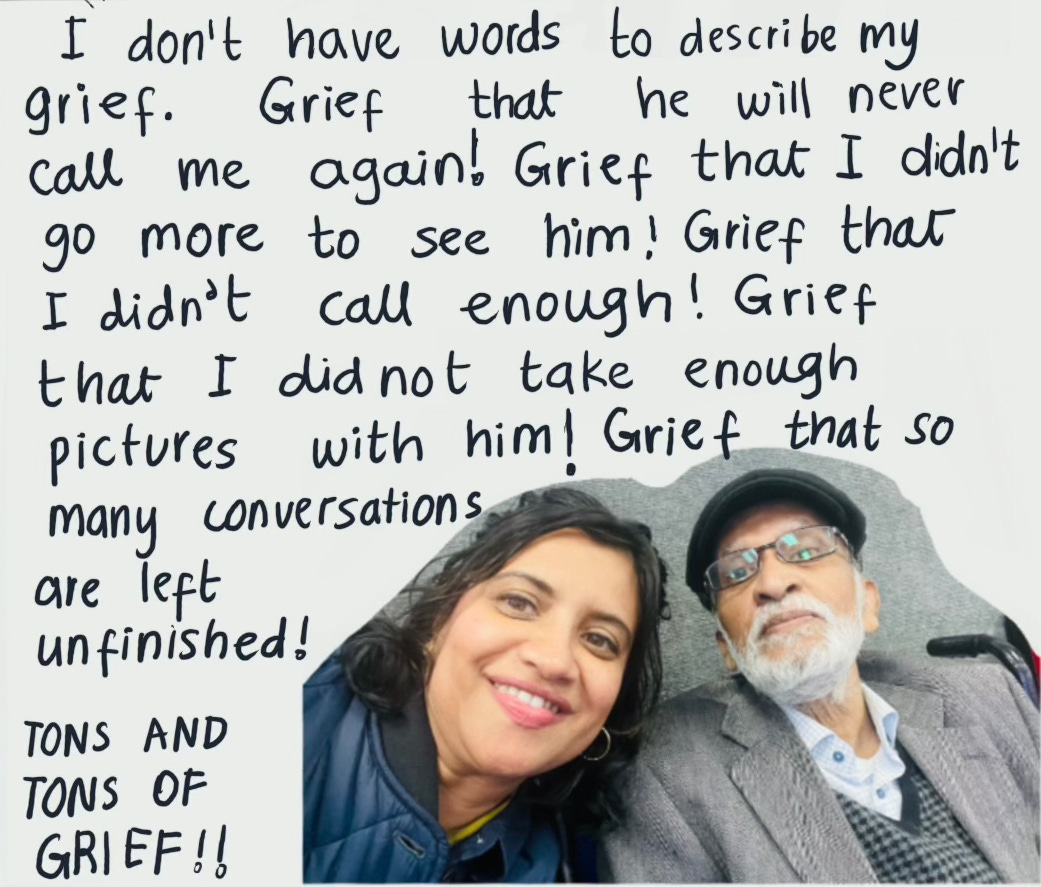 I don't have words to describe my
grief. Grief that he will never
call me again! Grief that I didn't
go more to see him! Grief that
I didn't call enough! Grief
that I did not take enough
pictures with him! Grief that so
many conversations
are left
unfinished!
TONS AND
TONS OF
GRIEF!!